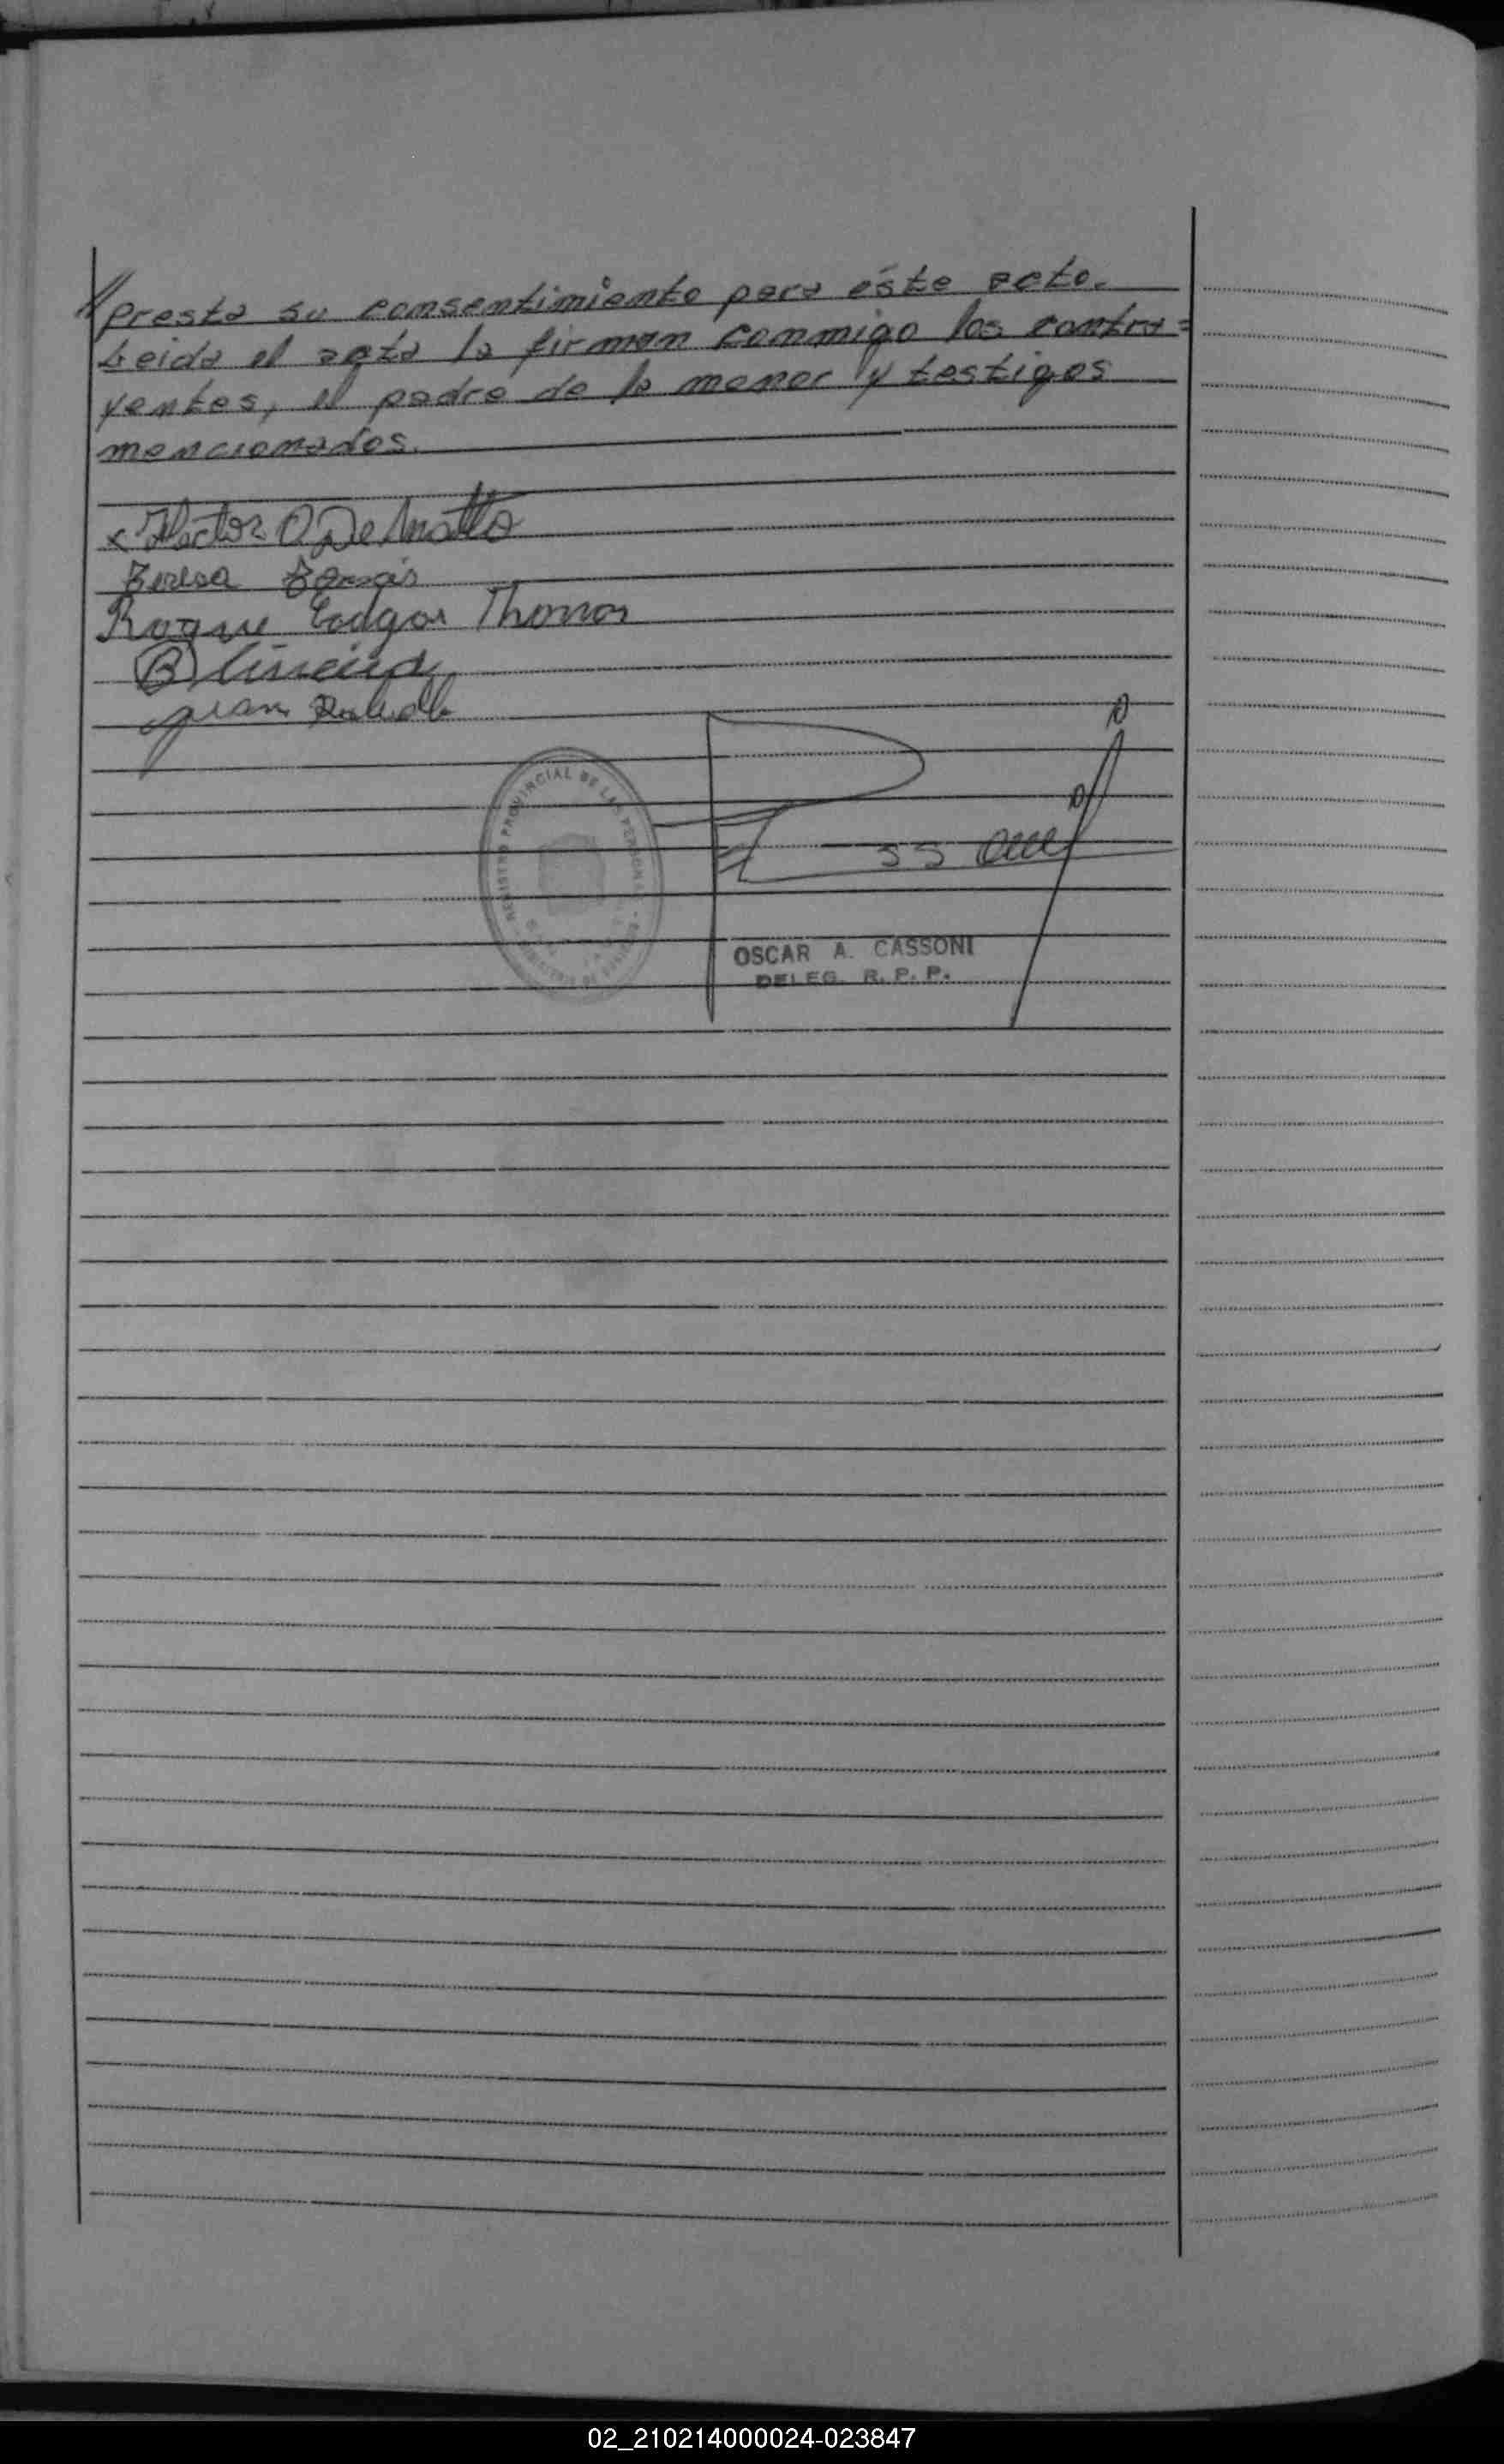 //presta su consentimiento para éste acto.
Leida el acta la firman conmigo los contra=
yentes, el padre de la menor y testigos
mencionados.
Hector O De Matto
Teresa Tomás
Roque Edgar Thomas
Juan
REGISTRO PROVINCIAL DE LAS PERSONAS
OSCAR A. CASSONI
DELEG. R. P. P.
02_210214000024-023847